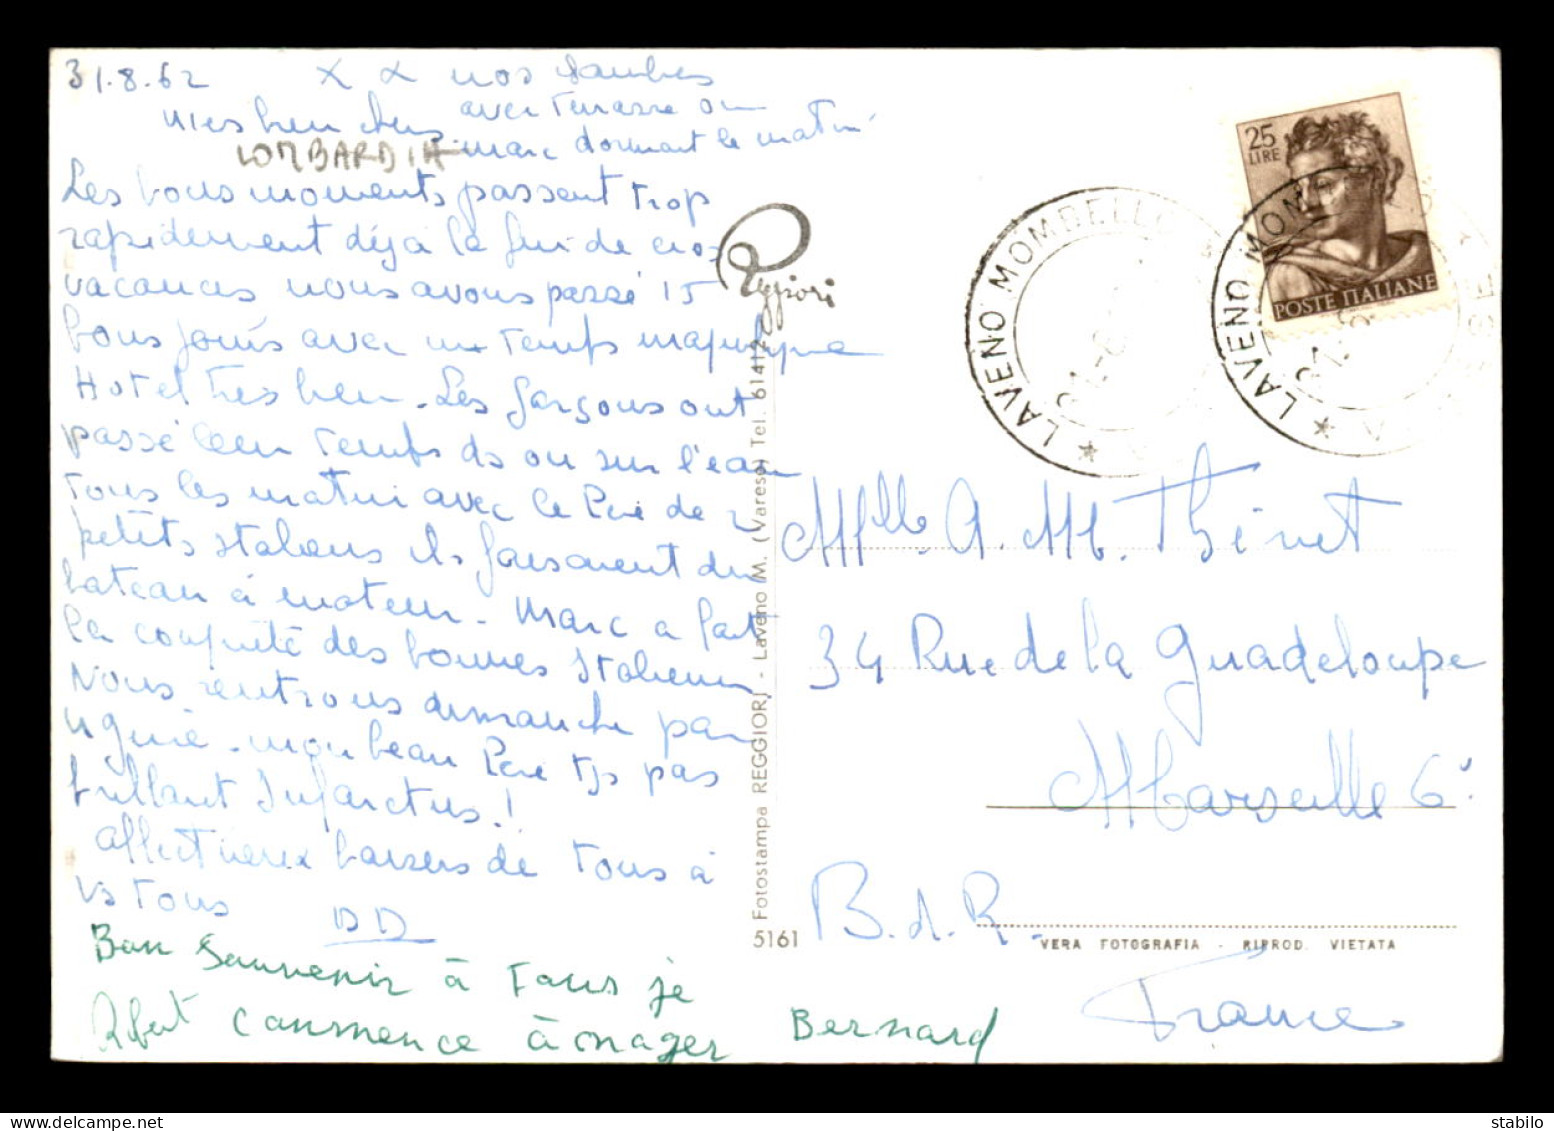 31.8.62 X X nos chambres
avec terrasse ou
mes bien chers. marc dormait le matin
LOMBARDIA
Les bons moments passent trop
rapidement déjà la fin de ces
vacances nous avons passé 15
bons jours avec un temps magnifique
Hotel très bien. Les garçons ont
passé leur temps ds ou sur l'eau
tous les matin avec le Père de 2
petits italiens ils faisaient du
bateau à moteur. Marc a fait
la conquête des bonnes Italiennes
Nous rentrons dimanche par
mon beau Père tjs pas
brillant Infarctus!
affectueux baisers de tous à
vs tous
Bon Souvenir à Tous je
Robert commence à nager Bernard
Reggiori
Fotostampa REGGIORI - Laveno M. (Varese) Tel. 61412
5161
25 LIRE
POSTE ITALIANE
* LAVENO MOMBELLO
* LAVENO MOM
Mlle. A. M. Thinet
34 Rue de la Guadeloupe
Marseille 6e
B.d.R.
VERA FOTOGRAFIA - RIPROD. VIETATA
France
stabilo
www.delcampe.net